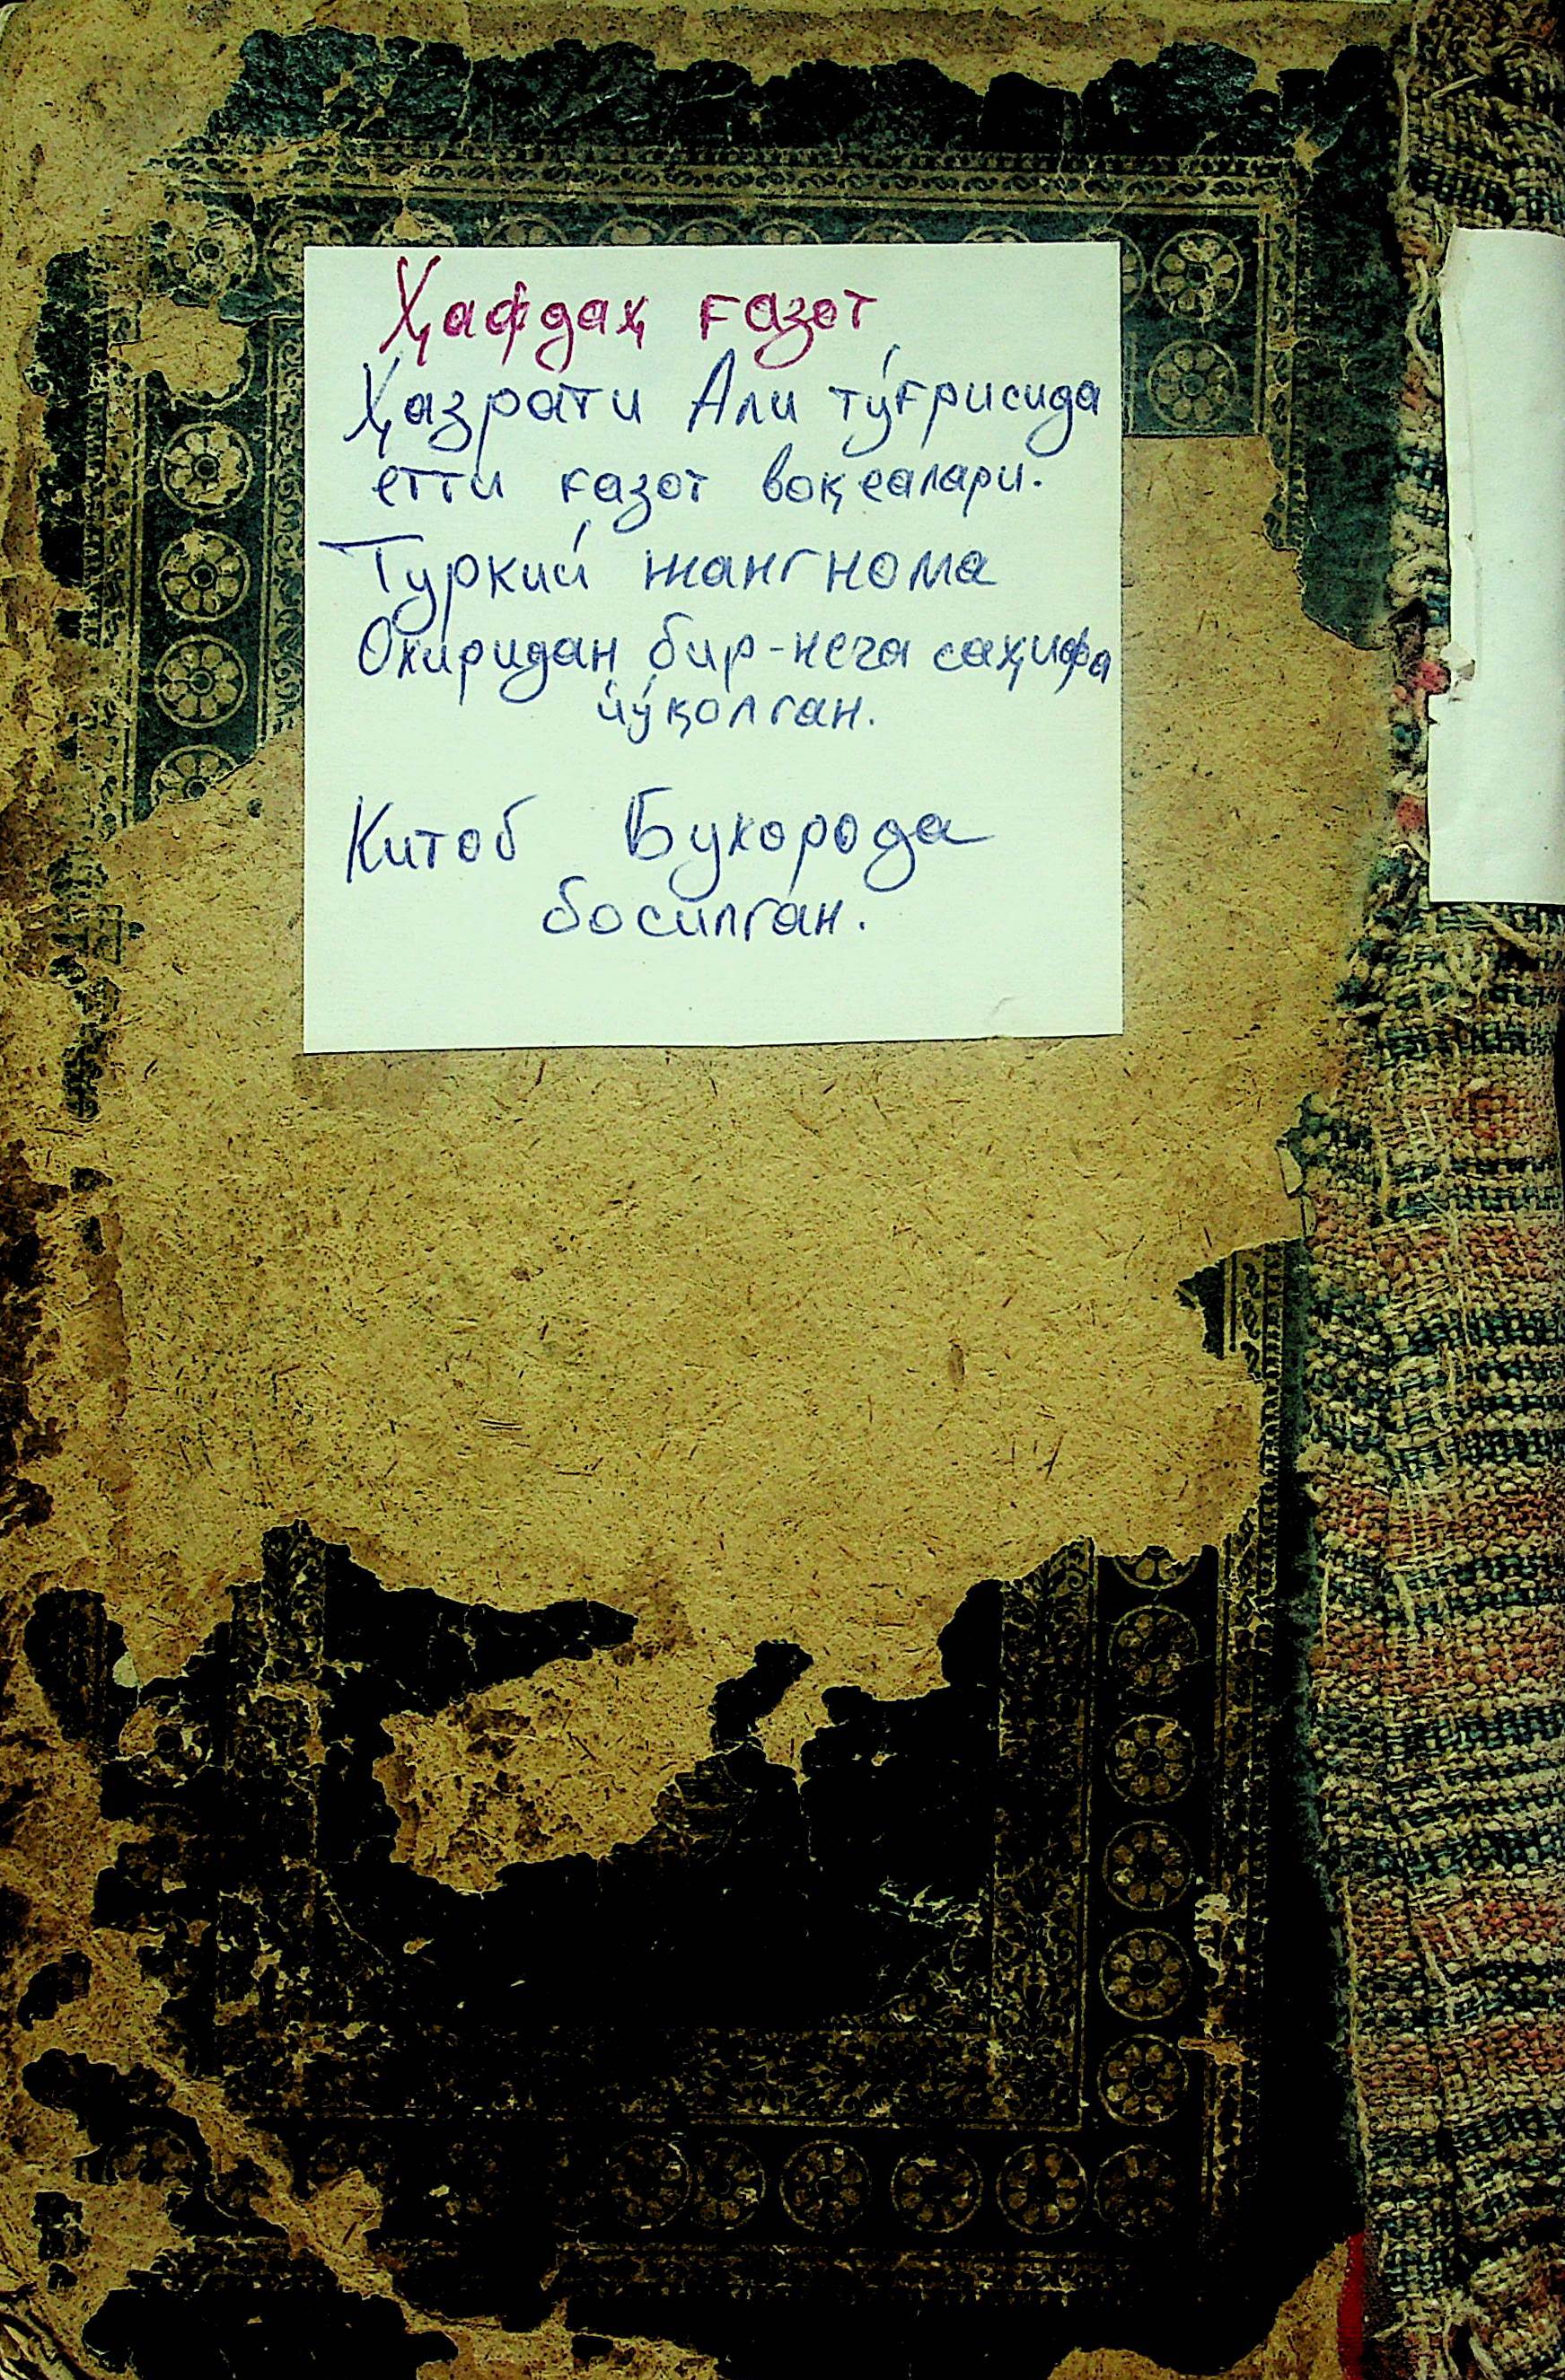 Ҳафдаҳ ғазот
Ҳазрати Али тўғрисида
етти ғазот воқеалари.
Туркий жангнома
Охиридан бир-неча саҳифа
йўқолган.
Китоб Бухорода
босилган.